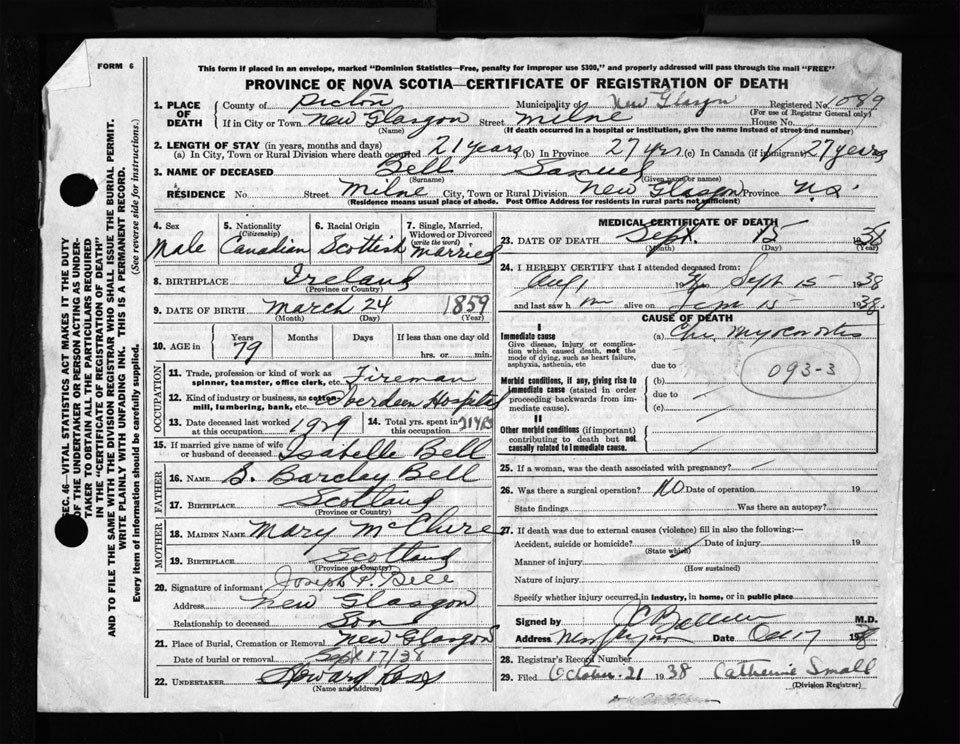 FORM 6
This form if placed in an envelope, marked "Dominion Statistics—Free, penalty for improper use $300," and properly addressed will pass through the mail "FREE"
PROVINCE OF NOVA SCOTIA—CERTIFICATE OF REGISTRATION OF DEATH
1. PLACE OF DEATH County of Pictou Municipality of New Glasgow Registered No. 1089
(For use of Registrar General only)
If in City or Town New Glasgow Street Milne House No.
(Name) (If death occurred in a hospital or institution, give the name instead of street and number)
2. LENGTH OF STAY (in years, months and days)
(a) In City, Town or Rural Division where death occurred 21 years (b) In Province 27 yrs (c) In Canada (if immigrant) 27 years
3. NAME OF DECEASED Bell Samuel
(Surname) (Given name or names)
RESIDENCE No. Street Milne City, Town or Rural Division New Glasgow Province N.S.
(Residence means usual place of abode. Post Office Address for residents in rural parts not sufficient)
4. Sex Male
5. Nationality (Citizenship) Canadian
6. Racial Origin Scottish
7. Single, Married, Widowed or Divorced (write the word) Married
8. BIRTHPLACE Ireland
(Province or Country)
9. DATE OF BIRTH March 24 1859
(Month) (Day) (Year)
10. AGE in Years Months Days If less than one day old
79 hrs. or min.
OCCUPATION
11. Trade, profession or kind of work as spinner, teamster, office clerk, etc. Fireman
12. Kind of industry or business, as cotton mill, lumbering, bank, etc. Aberdeen Hospital
13. Date deceased last worked at this occupation 1929
14. Total yrs. spent in this occupation 21 yrs
15. If married give name of wife or husband of deceased Isabelle Bell
FATHER
16. NAME S. Barclay Bell
17. BIRTHPLACE Scotland
(Province or Country)
MOTHER
18. MAIDEN NAME Mary McClure
19. BIRTHPLACE Scotland
(Province or Country)
20. Signature of informant Joseph P. Bell
Address New Glasgow
Relationship to deceased Son
21. Place of Burial, Cremation or Removal New Glasgow
Date of burial or removal Sept 17/38
22. UNDERTAKER Howard Ross
(Name and address)
MEDICAL CERTIFICATE OF DEATH
23. DATE OF DEATH Sept. 15 1938
(Month) (Day) (Year)
24. I HEREBY CERTIFY that I attended deceased from:
Aug 1 to Sept 15 1938
and last saw h im alive on 15 1938.
CAUSE OF DEATH
I
Immediate cause
Give disease, injury or complication which caused death, not the mode of dying, such as heart failure, asphyxia, asthenia, etc
(a) Chr. Myocarditis
due to
093-3
Morbid conditions, if any, giving rise to immediate cause (stated in order proceeding backwards from immediate cause).
(b)
due to
(c)
II
Other morbid conditions (if important) contributing to death but not causally related to immediate cause.
25. If a woman, was the death associated with pregnancy?
26. Was there a surgical operation? No Date of operation 19
State findings Was there an autopsy?
27. If death was due to external causes (violence) fill in also the following:—
Accident, suicide or homicide? Date of injury 19
(State which)
Manner of injury
(How sustained)
Nature of injury
Specify whether injury occurred in industry, in home, or in public place
Signed by M.D.
Address New Glasgow Date Oct 17 1938
28. Registrar's Record Number
29. Filed October 21 1938 Catherine Small
(Division Registrar)
SEC. 46—VITAL STATISTICS ACT MAKES IT THE DUTY
OF THE UNDERTAKER OR PERSON ACTING AS UNDER-
TAKER TO OBTAIN ALL THE PARTICULARS REQUIRED
IN THE "CERTIFICATE OF REGISTRATION OF DEATH"
AND TO FILE THE SAME WITH THE DIVISION REGISTRAR WHO SHALL ISSUE THE BURIAL PERMIT.
WRITE PLAINLY WITH UNFADING INK. THIS IS A PERMANENT RECORD.
Every item of information should be carefully supplied. (See reverse side for instructions.)